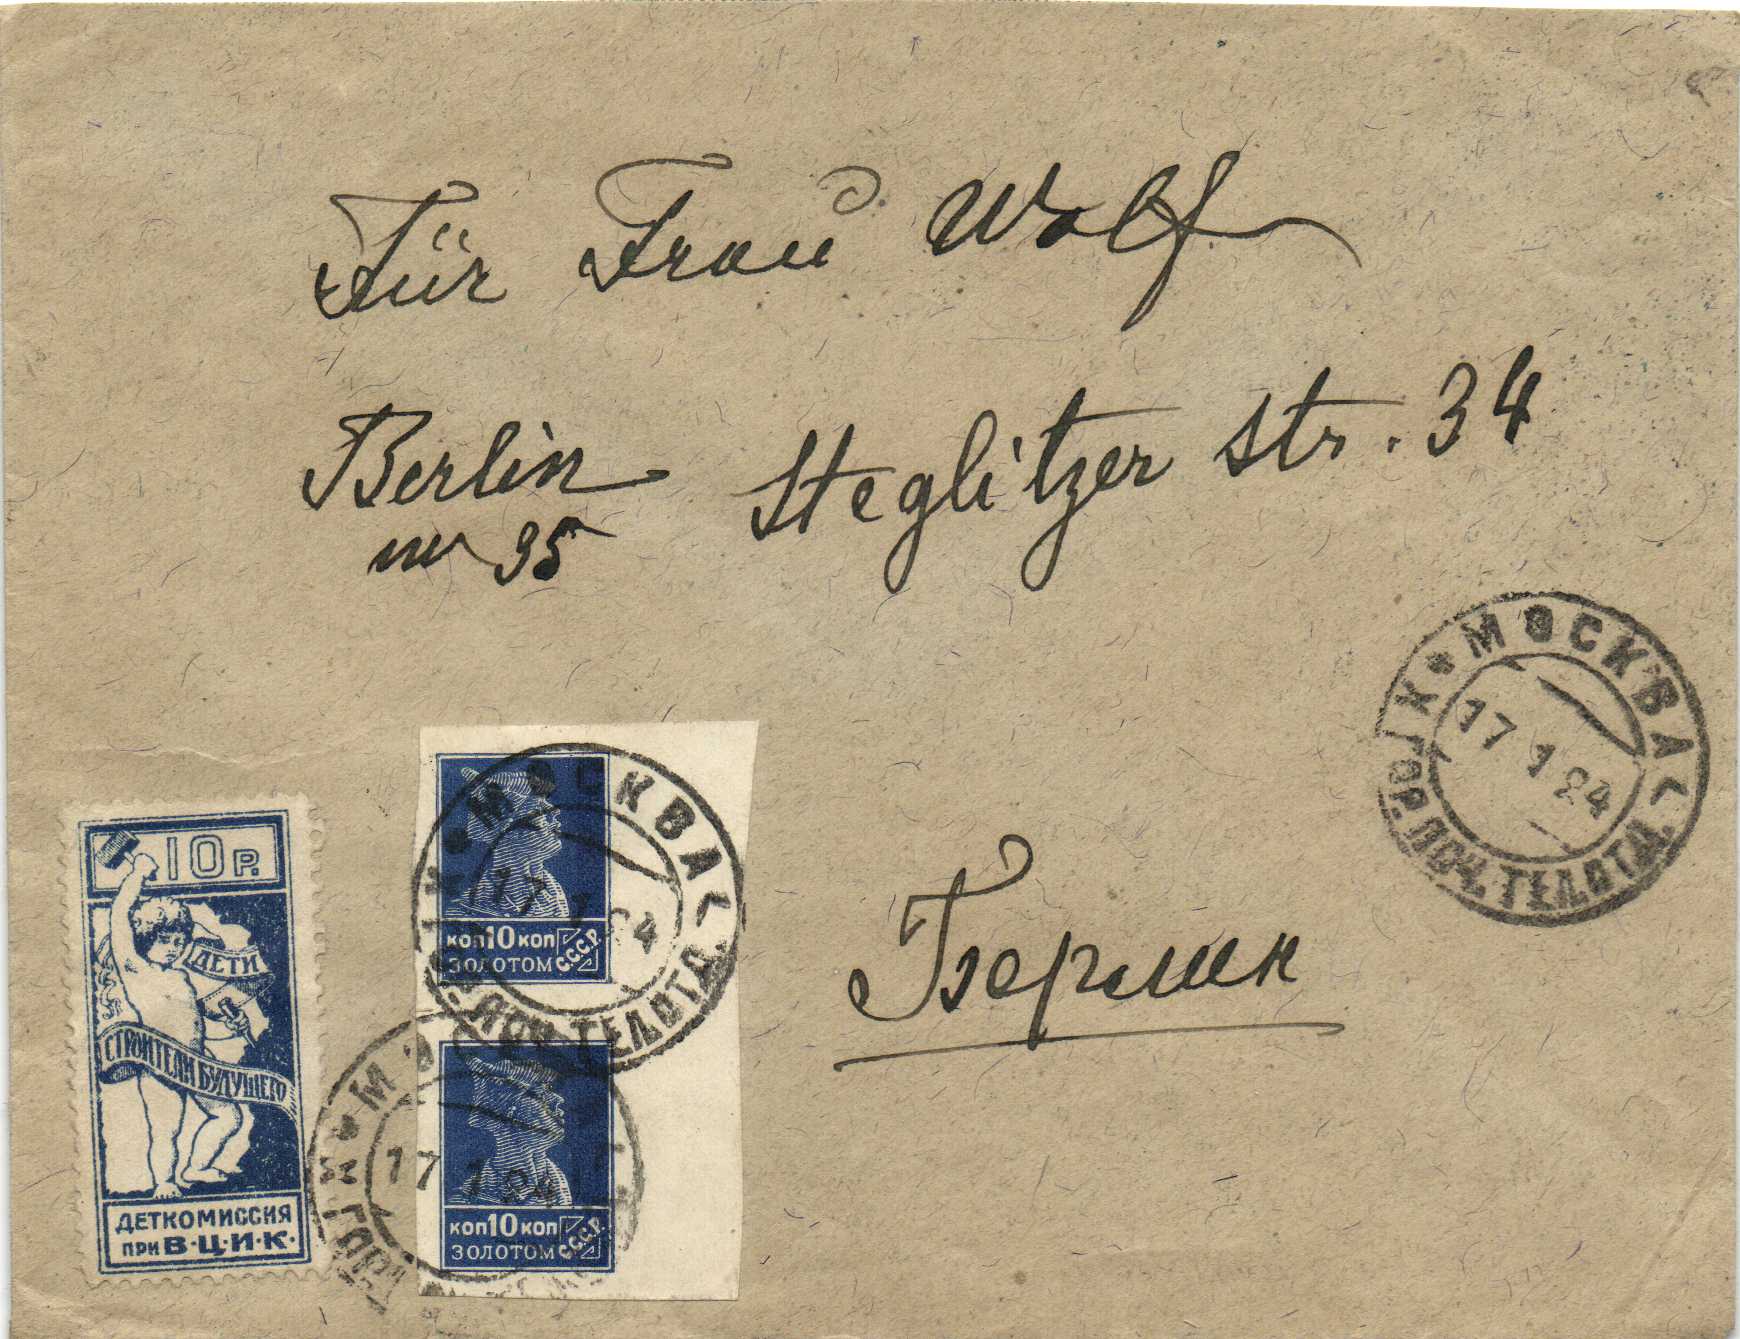 Für Frau Wolf
Berlin Steglitzer Str. 34
W 35
МОСКВА
17 1 24
ГОР. ПОЧ. ТЕЛ. ОТД.
Берлин
10 Р.
ДЕТИ
СТРОИТЕЛИ БУДУЩЕГО
ДЕТКОМИССИЯ
ПРИ В·Ц·И·К·
МОСКВА
17 1 24
ПОЧ. ТЕЛ. ОТД.
КОП 10 КОП
ЗОЛОТОМ С.С.С.Р.
17 1 24
КОП 10 КОП
ЗОЛОТОМ С.С.С.Р.